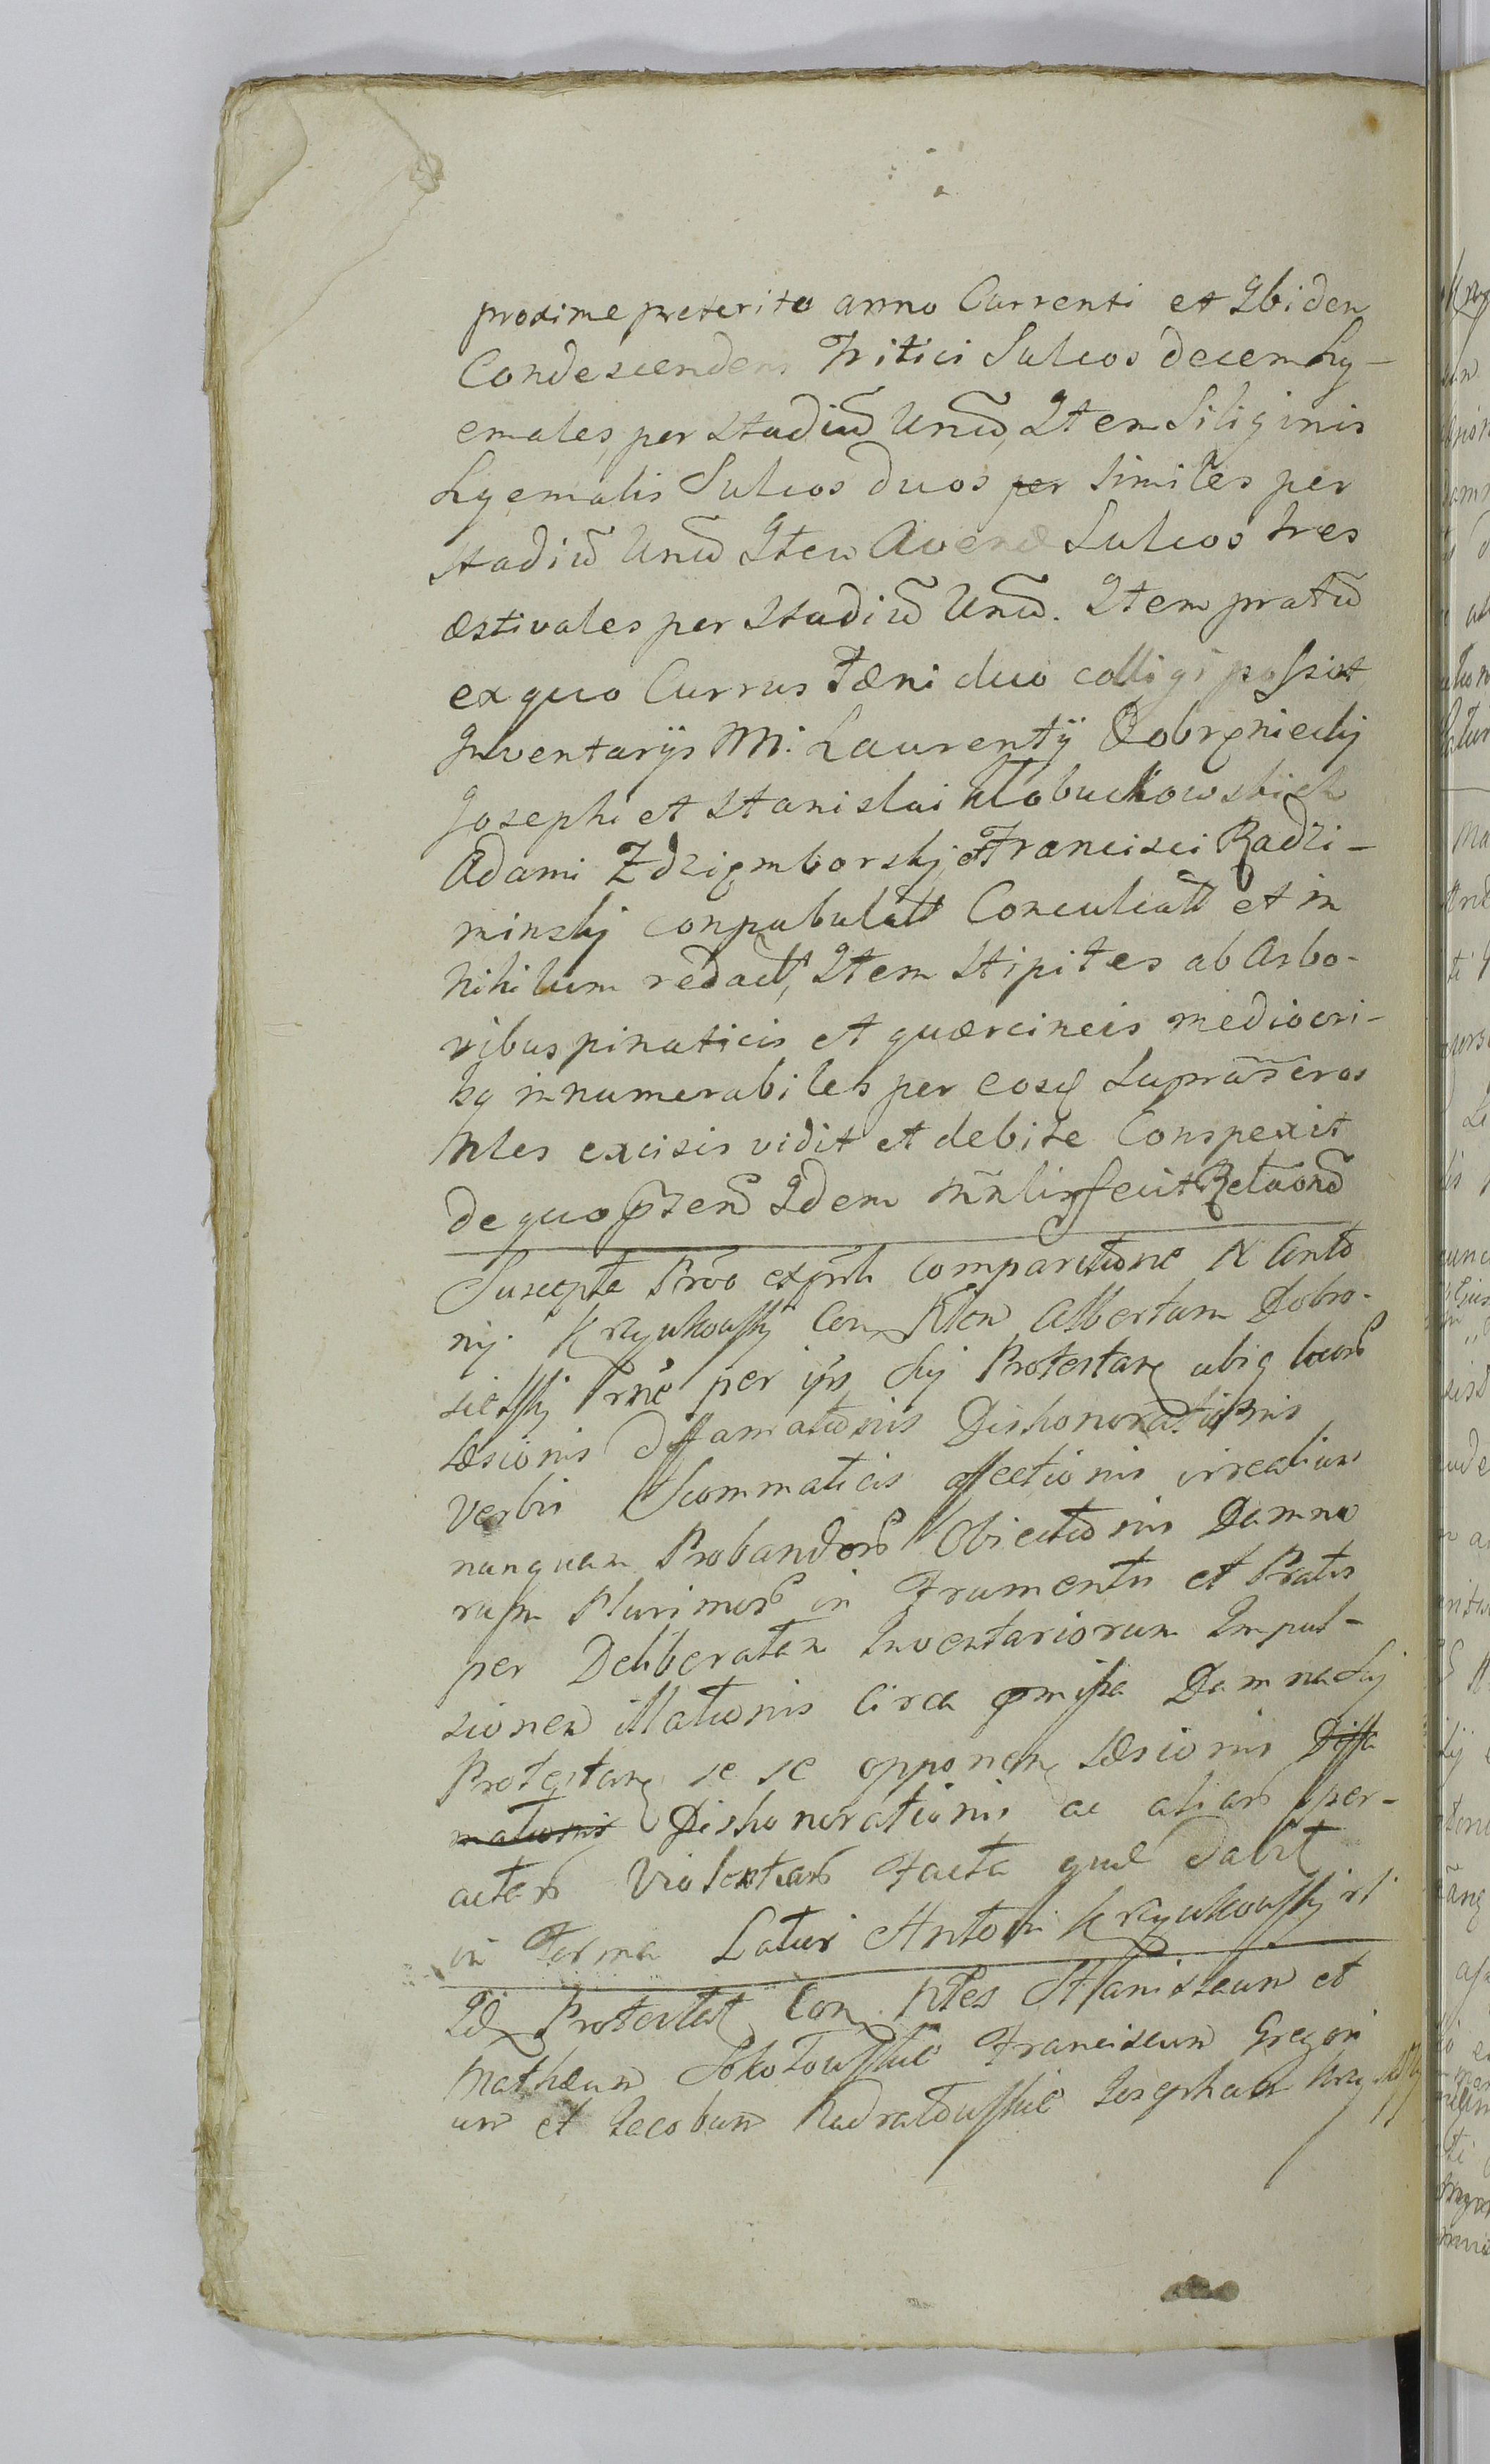 proxime preterito anno Currenti et Ibidem
Condescendens Tritici Sulcos decem hy-
emales, per stadiu͠ Unu͠, Item Siliginis
hyemalis Sulcos duos per similes per
stadiu͠ Unu͠ Item Avenæ Sulcos tres
æstivales per Stadiu͠ Unu͠. Item pratu͠
ex quo Currus Fæni duo colligi possint
Inventarijs M: Laurentÿ Dobrznieckj
Josephi et Stanislai Kłobuckowskich
Adami Zdziembborskj et Francisci Radzi-
minskj conpabulatt Conculcatt et in
Nihilum redactt, Item Stipites ab Arbo-
ribus pinaticis et quærcineis mediocri-
bq innumerabiles per eosq supra͠s͠cros
Nles excisis vidit et debite Conspexit
de quo p͠rzen͠ Idem M͠nlis fecit Rela͠on͠
Suscepta Pro͠o ex p͠nti comparitione N Anto
nÿ Krzyukowskj Con Nlem Albertum Dobro-
sielskj r͠ne per ip͠s sui Protestanq ubiq locor͠
Læsionis Diffamationis Dishonorationis
verbis Scommaticis affectionis irrealium
nunquam Probandor͠ Obiectionis Damno
rum Plurimor͠ in Frumentis et Pratis
per Deliberatam Inventariorum Impul-
sionem illationis Circa p͠missa Damna sui
Protestanq se se opponenq Læsionis Diffa
mationis Dishonorationis ac aliar͠ per-
actar͠ Violentiar͠ Facta quæ dabit
in Forma Latius Antoni Krzyukowskj
Idq Protestat Con Nles Stanislaum et
Mathæum Sokołowskie Franciscum Gregori
um et Jacobum Josephum